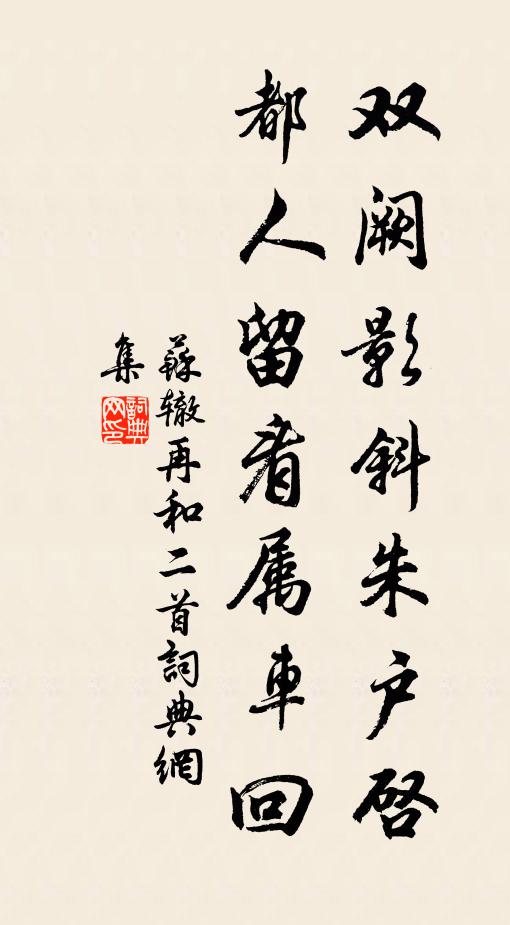 双阙影斜朱户启
都人留看属車回
蘇辙再和二首詞典網
集
詞典
网印